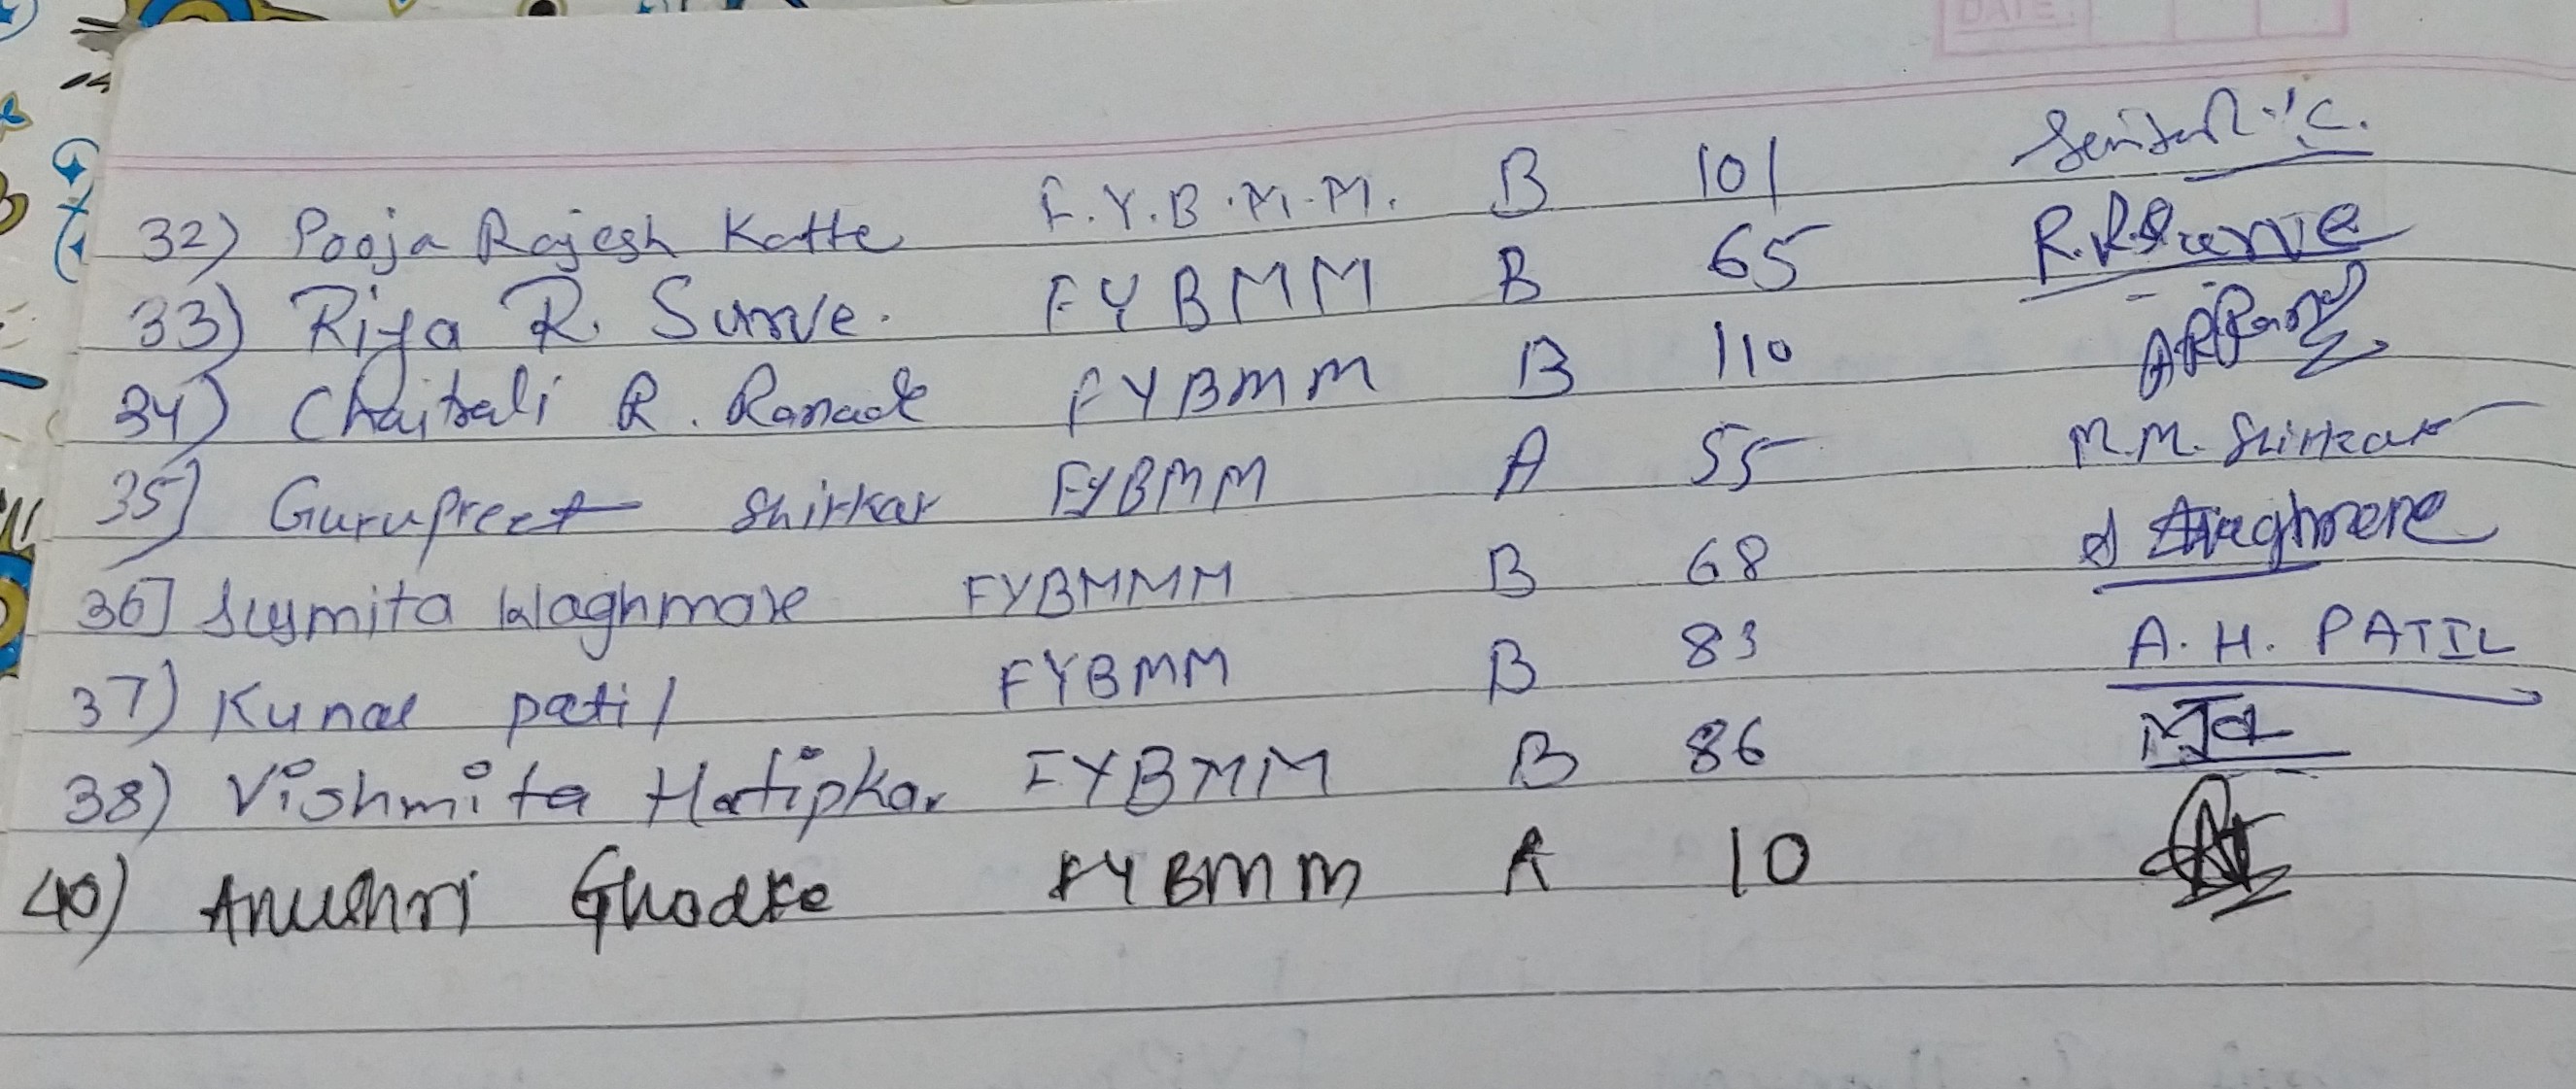 DATE:
32) Pooja Rajesh Katte F.Y.B.M.M. B 101
33) Riya R. Surve. FYBMM B 65 R.R.Surve
34) Chaitrali R. Ranade FYBMM B 110
35] Gurupreet Shirkar FYBMM A 55 M.M. Shirkar
36] Susmita Waghmare FYBMMM B 68 Waghmare
37) Kunal patil FYBMM B 83 A.H. PATIL
38) Vishmita Hatipkar FYBMM B 86
40) Anushri Ghodke FYBMM A 10